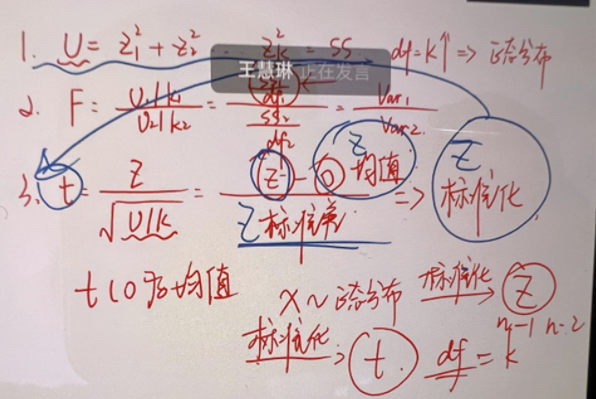 1. U = Z₁² + Z₂² ... Zₖ² = SS. df = k↑ => 正态分布
王慧琳 正在发言
2. F = U₁/k₁ / U₂/k₂ = / df₁ / SS₂ / df₂ = Var₁ / Var₂
3. t = Z / √U/k = Z - 0 / Z标准差 => Z 标准化
Z 均值
t (0) 均值
X ~ 正态分布 标准化 → Z
标准化 → t. df = k n-1 n-2